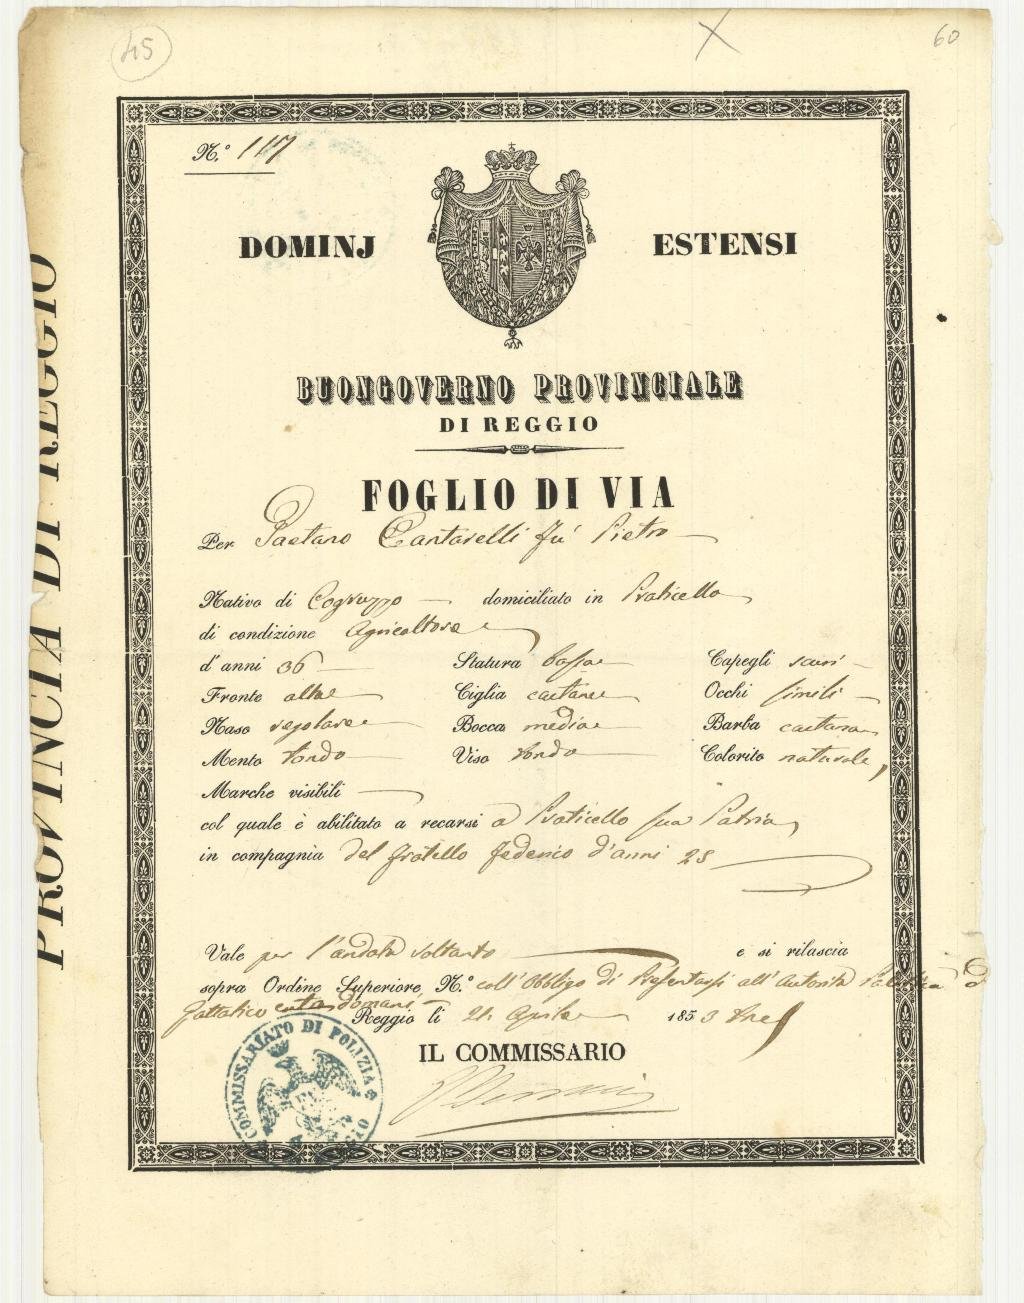 45
60
N.° 117
DOMINJ ESTENSI
BUONGOVERNO PROVINCIALE
DI REGGIO
FOGLIO DI VIA
Per Gaetano Cantarelli fu Pietro
Nativo di Cogruzzo domiciliato in Praticello
di condizione Agricoltore
d'anni 36 Statura bassa Capegli scuri
Fronte alta Ciglia castane Occhi simili
Naso regolare Bocca media Barba castana
Mento tondo Viso tondo Colorito naturale
Marche visibili
col quale è abilitato a recarsi a Praticello sua Patria
in compagnia del fratello Federico d'anni 25
Vale per l'andata soltanto e si rilascia
sopra Ordine Superiore N.° coll'obbligo di presentarsi all'Autorità Politica di
Gattatico entro domani
Reggio li 21 Aprile 1853 tre
IL COMMISSARIO
COMMISSARIATO DI POLIZIA
REGGIO
PROVINCIA DI REGGIO